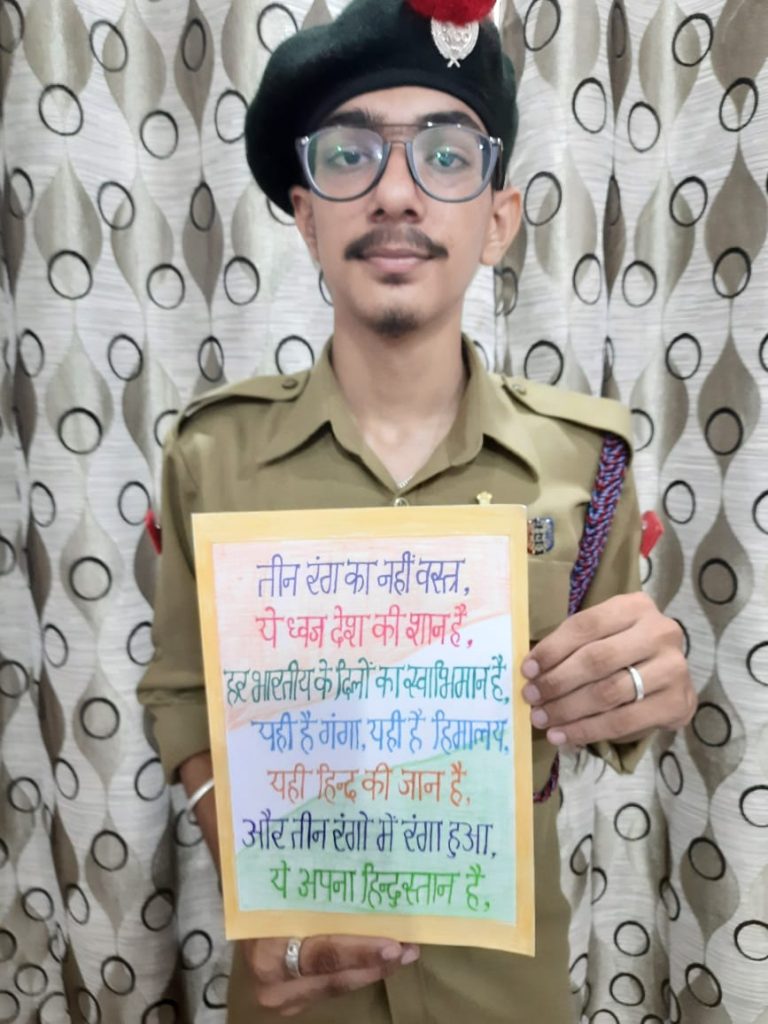 तीन रंग का नहीं वस्त्र,
ये ध्वज देश की शान है,
हर भारतीय के दिलों का स्वाभिमान है,
यही है गंगा, यही है हिमालय,
यही हिन्द की जान है,
और तीन रंगो में रंगा हुआ,
ये अपना हिन्दुस्तान है,